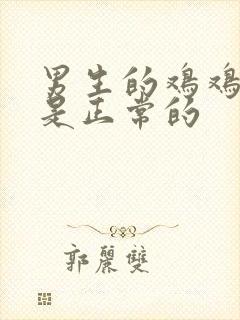 男生的鸡鸡
是正常的
郭麗雙